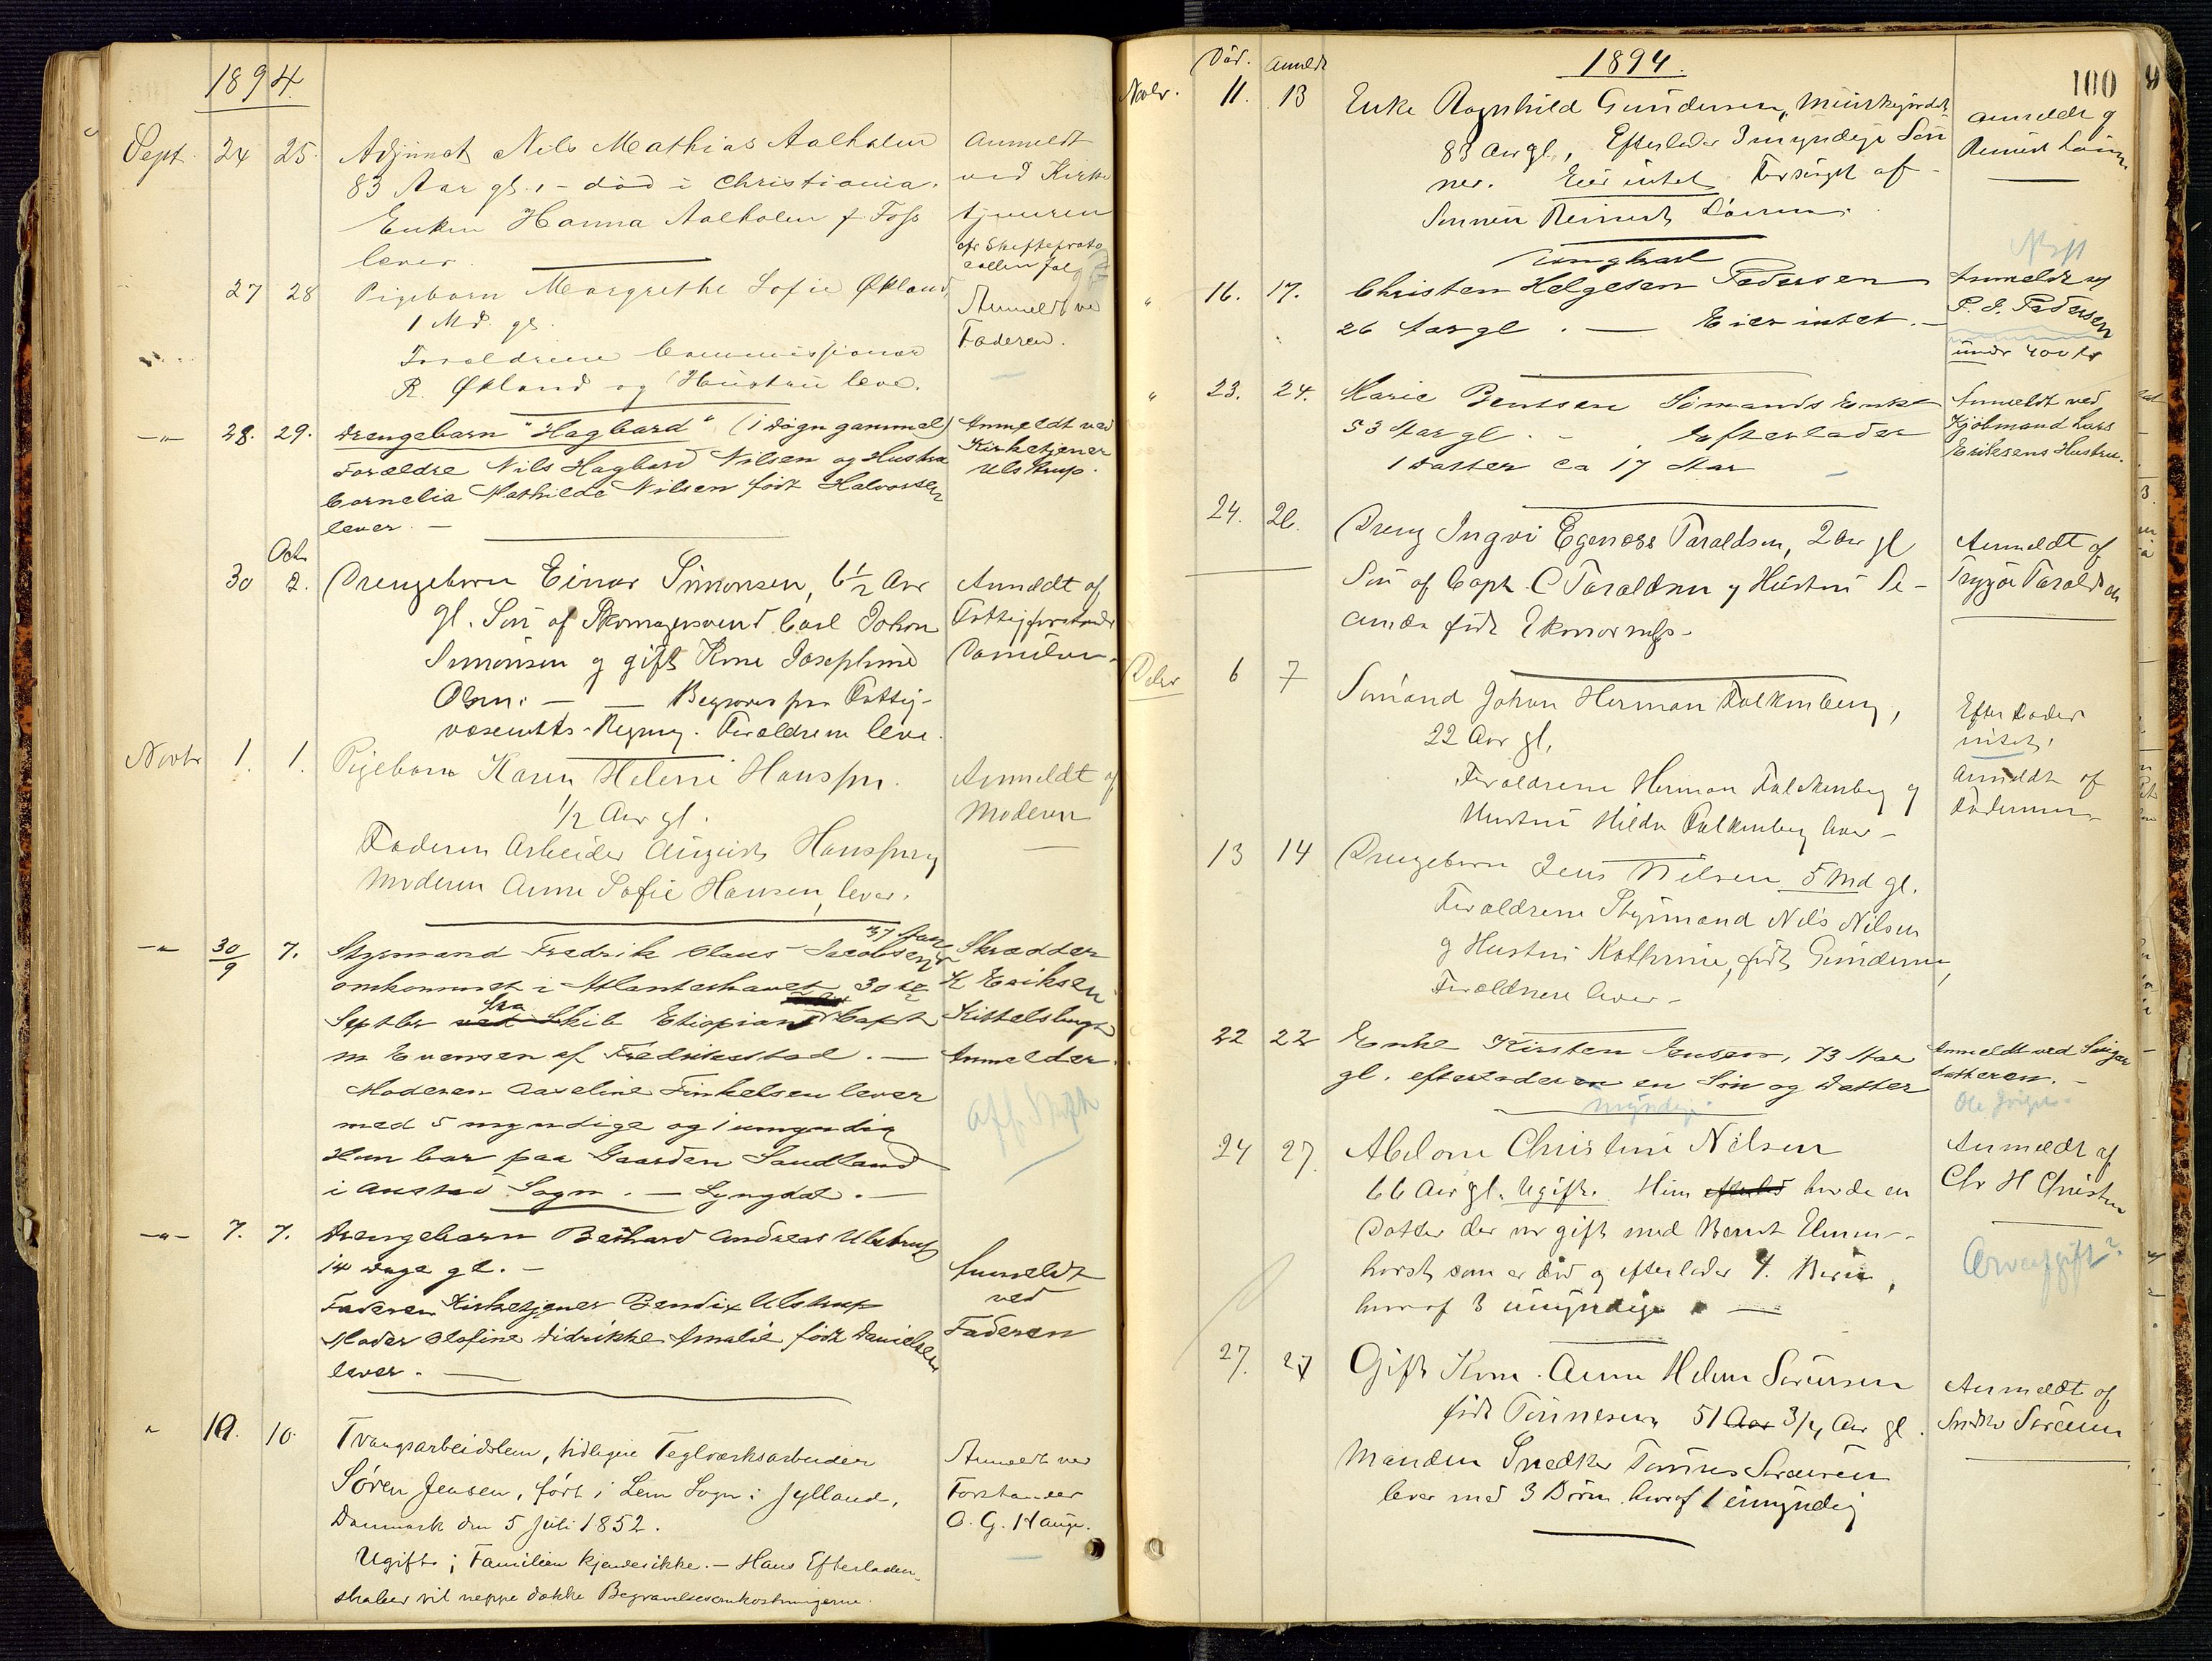 1894
Sept. 24 25. Adjunct Nils Mathias Aalholm
83 Aar gl. - død i Christiania.
Enken Hanna Aalholm f. Foss
lever.
Anmeldt
ved Kirke
tjeneren
27 28 Pigebarn Margrethe Sofie Økland,
1 Md. gl.
Forældrene Commissionær
R. Økland og Hustru leve.
Anmeldt ved
Faderen.
-"- 28. 29. Drengebarn "Hagbard" (1 Døgn gammel)
Forældre Nils Hagbard Nilsen og Hustru
Cornelia Mathilde Nilsen født Halvorsen
lever. -
Anmeldt ved
Kirketjener
Ulstrup.
Oct
30 2. Drengebarn Einar Simonsen, 6 1/2 Aar
gl. Søn af Skomagersvend Carl Johan
Simonsen og gift Kone Josephine
Olsen: - Begraves paa Fattig-
væsenets Regning. Forældrene leve.
Anmeldt af
Fattigforstander
Danielsen.
Novbr 1. 1. Pigebarn Karen Helene Hanssen.
1/2 Aar gl.
Faderen Arbeider August Hanssen og
Moderen Anne Sofie Hansen, lever.
Anmeldt af
Moderen
-"- 30/9 7. Styrmand Fredrik Olaus Jacobsen 37 Aar
omkommet i Atlanterhavet 30te
Septbr ved fra Skib Etiopian Capt
M Evensen af Fredrikstad. -
Moderen Axeline Finkelsen lever
med 5 myndige og 1 umyndig
Hun bor paa Gaarden Sandland
i Austad Sogn. - Lyngdal. -
Skrædder
K Eriksen
Kittelsbugt
Anmelder.
-"- 7. 7. Drengebarn Berhard Andreas Ulstrup
14 Dage gl. -
Faderen Kirketjener Bendix Ulstrup
Moder Olofine Didrikke Amalie født Danielsen
lever. -
Anmeldt
ved
Faderen
" 10. 10. Tvangsarbeidslem, tidligere Teglværksarbeider
Søren Jensen, født i Lem Sogn i Jylland,
Danmark den 5 Juli 1852.
Ugift; Familien kjendes ikke. - Hans Efterladen-
skaber vil neppe dække Begravelsesomkostningerne.
Anmeldt ved
Forstander
O. G. Hauge.
Død. Anmeldt 1894. 100
Novbr. 11. 13 Enke Ragnhild Gundersen,
83 Aar gl., Efterlader 3 myndige Søn
ner. Eier intet Forsørget af
Sønnen Reinert
anmeldt af
Reinert
Ungkarl
" 16. 17. Christen Helgesen Pedersen
26 Aar gl. - Eier intet. -
Anmeldt af
P. J. Pedersen
under 400 kr
" 23. 24. Marie Bentsen Sømands Enke
53 Aar gl. - Efterlader
1 Datter ca 17 Aar
Anmeldt ved
Kjøbmand Lars
Eriksens Hustru.
24. 26. Dreng Ingvi Egenæss Taraldsen, 2 Aar gl
Søn af Capt. C Taraldsen og Hustru
født
Anmeldt af
Trygve Taraldsen
Debr 6 7 Sømand Johan Herman Falkenberg,
22 Aar gl.
Forældrene Herman Falckenberg og
Hustru Hilda Falkenberg lever -
Efterlader
intet.
Anmeldt af
Faderen
13 14 Drengebarn Jens Nilsen 5 Md gl.
Forældrene Styrmand Nils Nilsen
og Hustru Kathrine, født Gundersen,
Forældrene lever -
22 22 Enke Kirsten Ensen, 73 Aar
gl. efterlader en Søn og Datter
myndige
Anmeldt ved Sviger
datteren. -
24 27. Abelone Christine Nilsen
66 Aar gl. Ugift. Hun havde en
Datter der var gift med Bernt Elmen-
horst som er død og efterlader 4. Børn,
hvoraf 3 umyndige -
Anmeldt af
Chr H Christensen
Arveafgift?
27. 27 Gift Kone. Anne Helene Sørensen
født Tønnesen, 51 Aar 3/4 Aar gl.
Manden Snedker Tønnes Sørensen
lever med 3 Børn hvoraf 1 umyndig
Anmeldt af
Snedker Sørensen